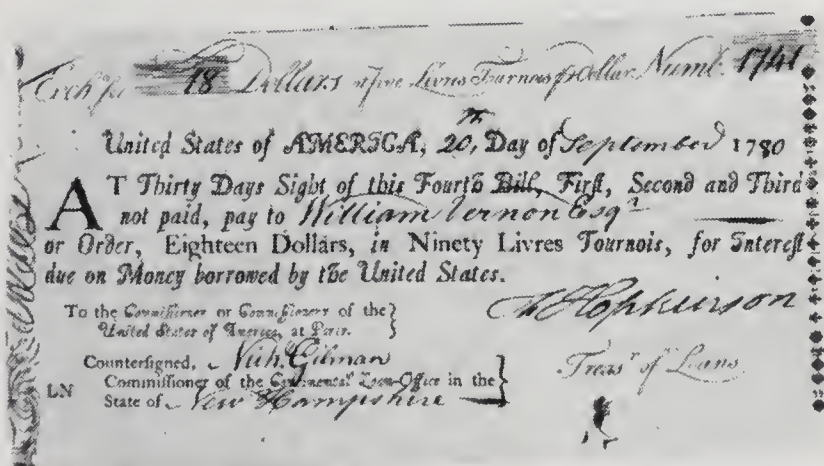 Exch. for 18 Dollars at five Livres Tournois pr Dollar Numb. 1741
United States of AMERICA, 20th, Day of September 1780
AT Thirty Days Sight of this Fourth Bill, First, Second and Third
not paid, pay to William Vernon Esqr
or Order, Eighteen Dollars, in Ninety Livres Tournois, for Interest
due on Money borrowed by the United States.
To the Commissioner or Commissioners of the
United States of America, at Paris.
Hopkinson
Treasr of Loans
Countersigned, Nich. Gilman
LN Commissioner of the Continental Loan-Office in the
State of New Hampshire